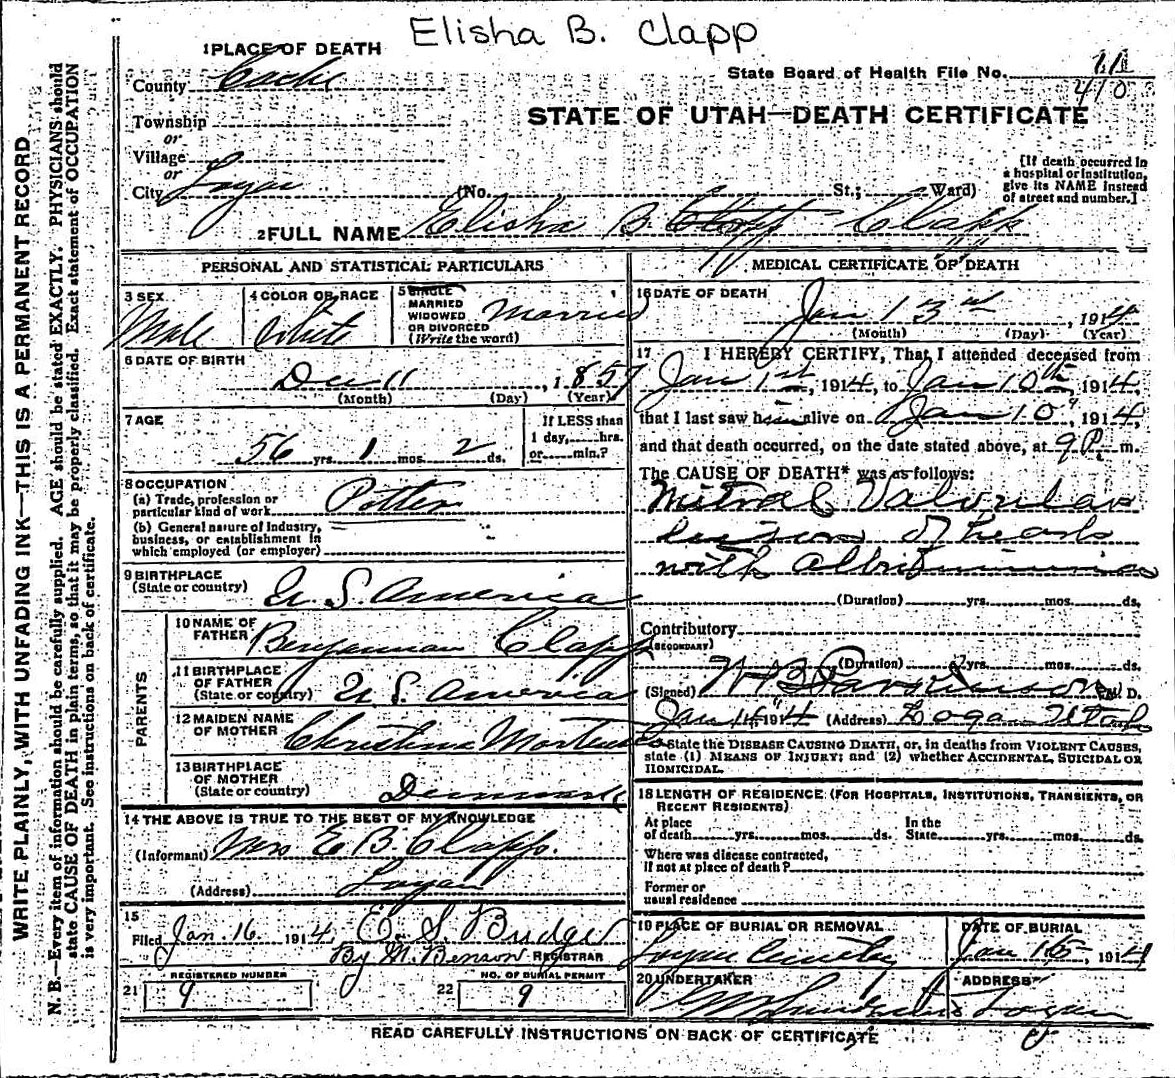 Elisha B. Clapp
1 PLACE OF DEATH
County Cache
State Board of Health File No. 11
410
STATE OF UTAH—DEATH CERTIFICATE
Township
or
Village
or
City Logan (No. St.; Ward)
[If death occurred in a hospital or institution, give its NAME instead of street and number.]
2 FULL NAME Elisha B. Clapp
PERSONAL AND STATISTICAL PARTICULARS
3 SEX Male
4 COLOR OR RACE White
5 SINGLE MARRIED WIDOWED OR DIVORCED (Write the word) Married
6 DATE OF BIRTH
Dec 11, 1857
(Month) (Day) (Year)
7 AGE
56 yrs. 1 mos. 2 ds.
If LESS than 1 day, hrs. or min.?
8 OCCUPATION
(a) Trade, profession or particular kind of work Potter
(b) General nature of Industry, business, or establishment in which employed (or employer)
9 BIRTHPLACE
(State or country) U. S. America
PARENTS
10 NAME OF FATHER Benjaman Clapp
11 BIRTHPLACE OF FATHER (State or country) U S. America
12 MAIDEN NAME OF MOTHER Christina
13 BIRTHPLACE OF MOTHER (State or country) Denmark
14 THE ABOVE IS TRUE TO THE BEST OF MY KNOWLEDGE
(Informant) Mrs E B. Clapp.
(Address) Logan
15
Filed Jan. 16 1914, E. S. Budge
By M. Benson REGISTRAR
REGISTERED NUMBER
21 9
NO. OF BURIAL PERMIT
22 9
MEDICAL CERTIFICATE OF DEATH
16 DATE OF DEATH
Jan 13, 1914
(Month) (Day) (Year)
17 I HEREBY CERTIFY, That I attended deceased from
Jan 1st, 1914, to Jan 10th, 1914,
that I last saw him alive on Jan 10", 1914,
and that death occurred, on the date stated above, at 9 P. m.
The CAUSE OF DEATH* was as follows:
Mitral Valvular
lesion of heart
with
(Duration) yrs. mos. ds.
Contributory
(SECONDARY)
(Duration) yrs. mos. ds.
(Signed) W B Parkinson M. D.
Jan 1914 (Address) Logan Utah
*State the DISEASE CAUSING DEATH, or, in deaths from VIOLENT CAUSES, state (1) MEANS OF INJURY; and (2) whether ACCIDENTAL, SUICIDAL OR HOMICIDAL.
18 LENGTH OF RESIDENCE (FOR HOSPITALS, INSTITUTIONS, TRANSIENTS, OR RECENT RESIDENTS)
At place of death yrs. mos. ds. In the State yrs. mos. ds.
Where was disease contracted, if not at place of death?
Former or usual residence
19 PLACE OF BURIAL OR REMOVAL
Logan Cemetery
DATE OF BURIAL
Jan 15, 1914
20 UNDERTAKER
ADDRESS
Logan
READ CAREFULLY INSTRUCTIONS ON BACK OF CERTIFICATE
WRITE PLAINLY, WITH UNFADING INK—THIS IS A PERMANENT RECORD
N. B.—Every item of information should be carefully supplied. AGE should be stated EXACTLY. PHYSICIANS should
state CAUSE OF DEATH in plain terms, so that it may be properly classified. Exact statement of OCCUPATION
is very important. See instructions on back of certificate.